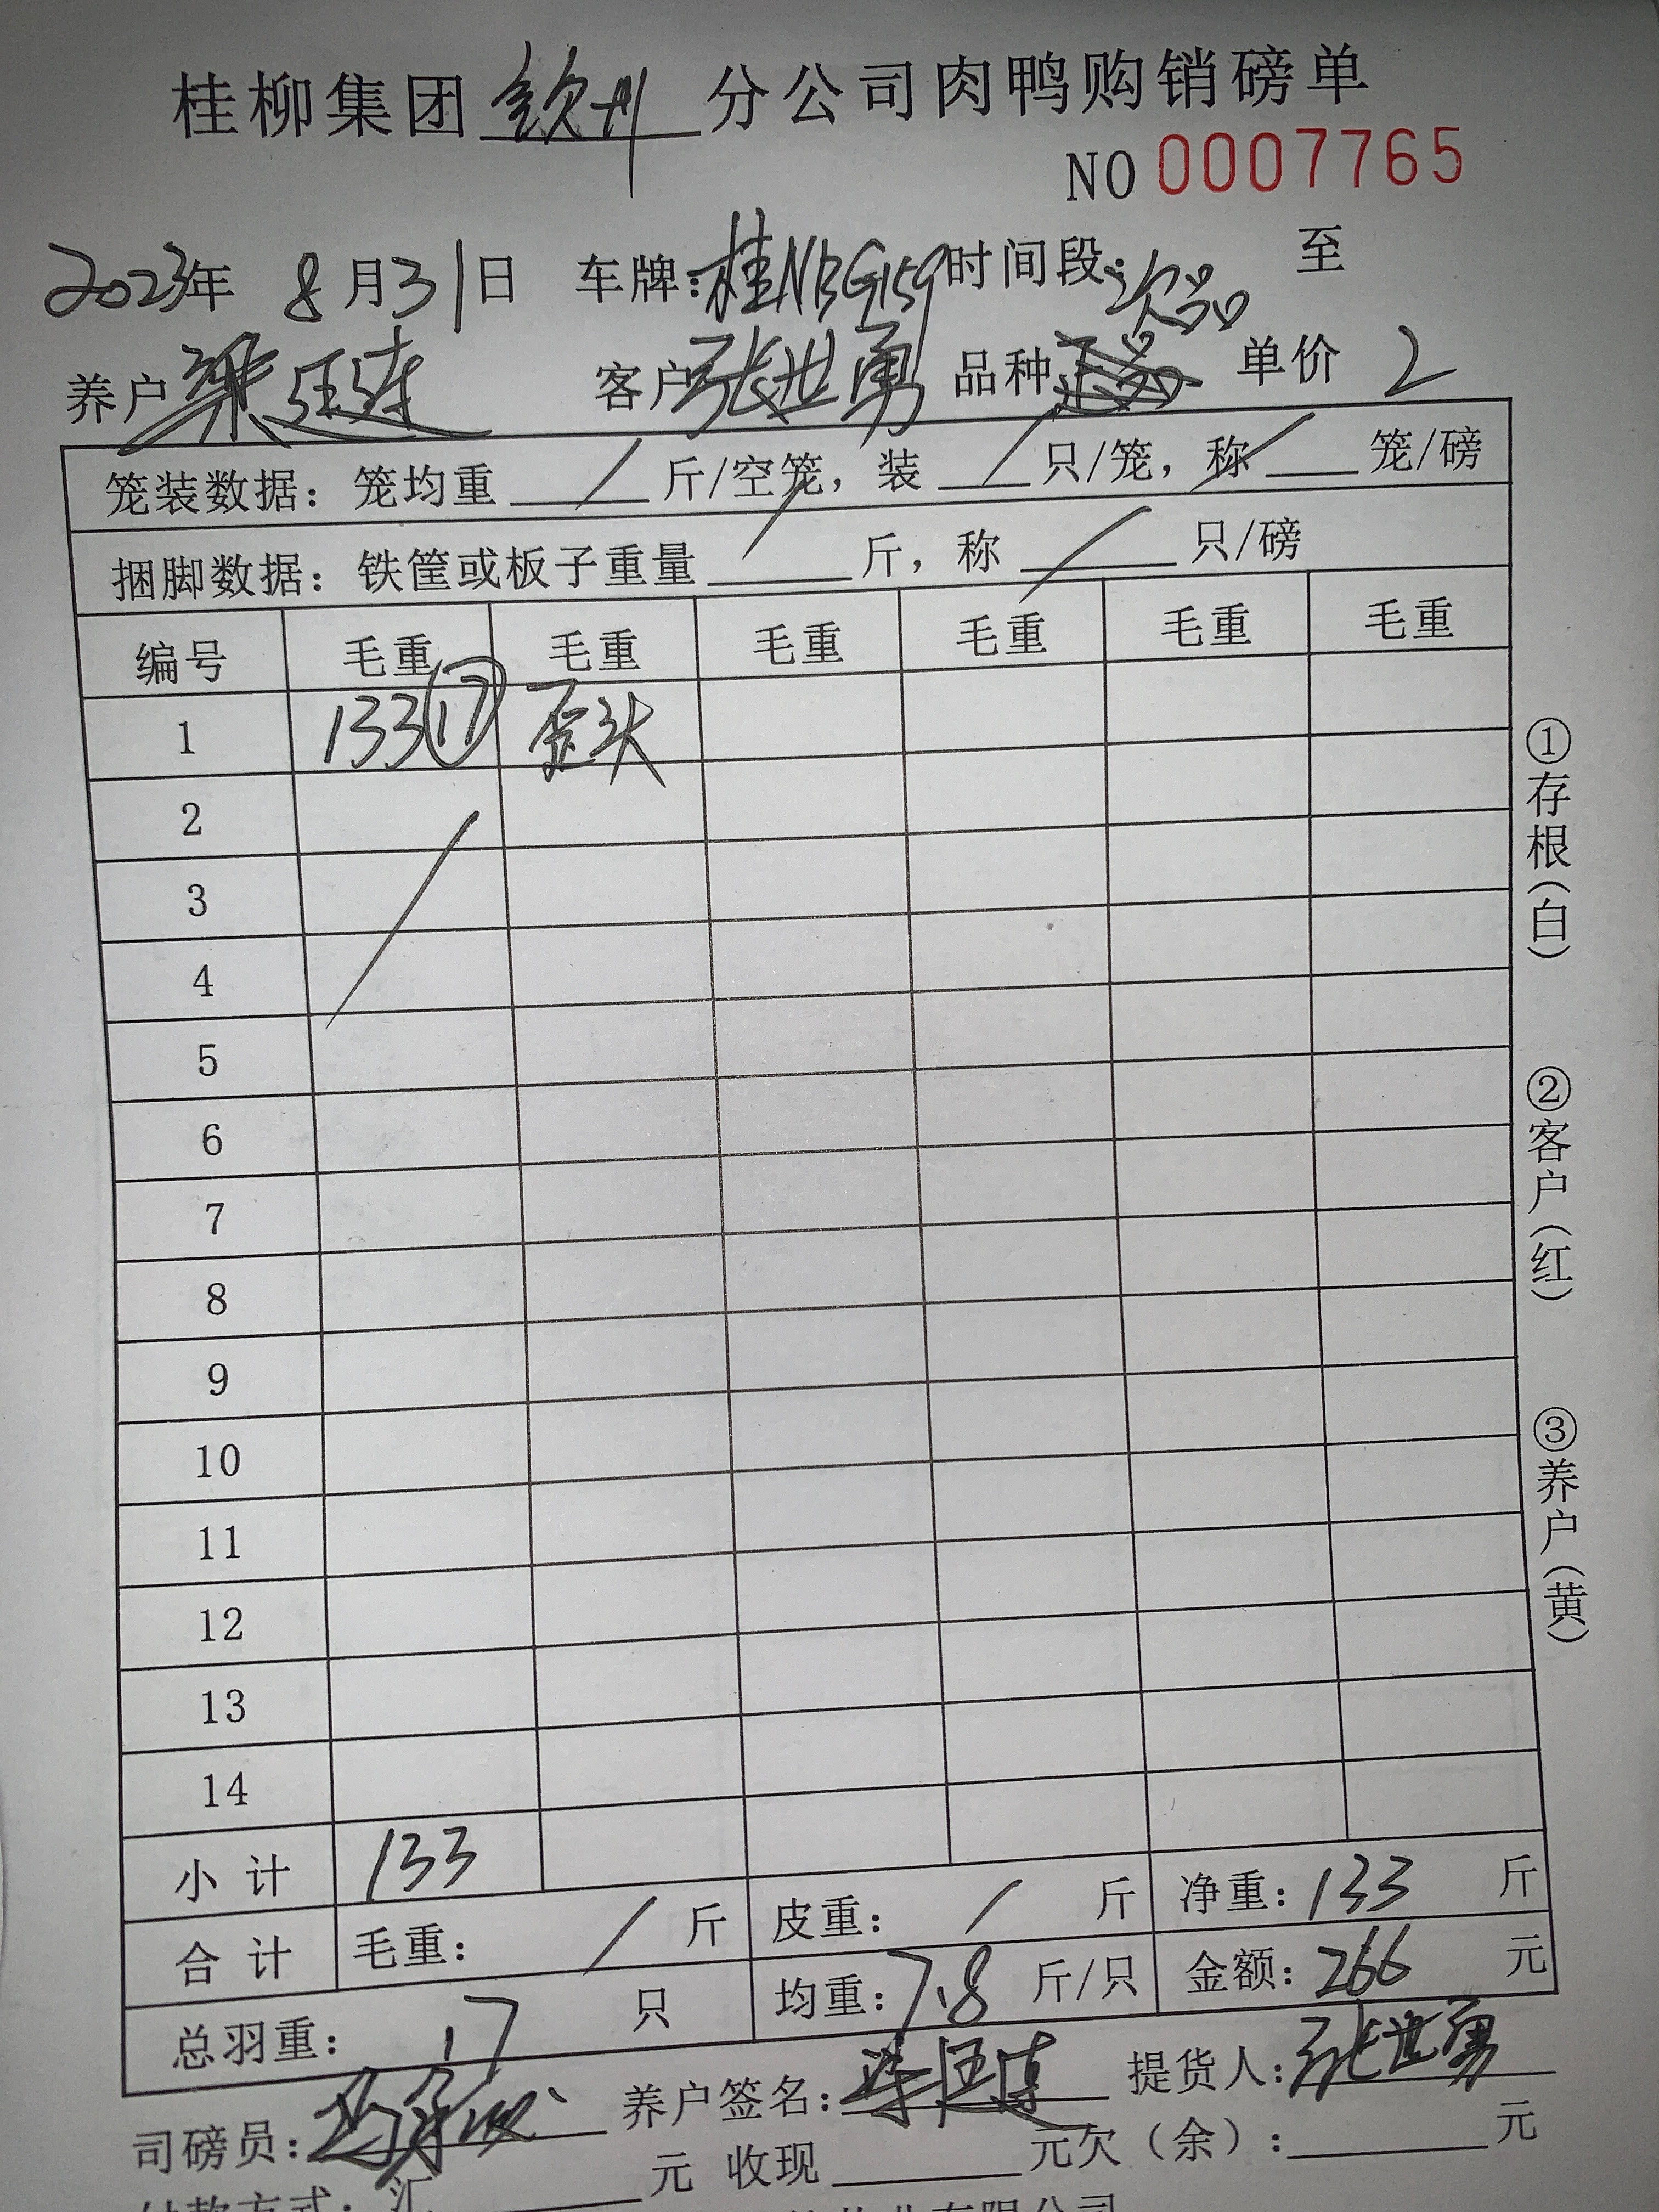 桂柳集团钦州分公司肉鸭购销磅单
NO 0007765
2023年 8月31日 车牌:桂NBG159时间段:次品 至
养户梁汪连 客户张世勇 品种 单价 2
笼装数据：笼均重 / 斤/空笼，装 / 只/笼，称 / 笼/磅
捆脚数据：铁筐或板子重量 / 斤，称 / 只/磅
编号 毛重 毛重 毛重 毛重 毛重 毛重
1 133⑰ 歪头
2
3
4
5
6
7
8
9
10
11
12
13
14
小计 133
合计 毛重: / 斤 皮重: / 斤 净重:133 斤
总羽重: 17 只 均重:7.8 斤/只 金额:266 元
司磅员: 养户签名:梁汪连 提货人:张世勇
付款方式:汇 元 收现 元欠（余）: 元
有限公司
①存根(白)
②客户(红)
③养户(黄)